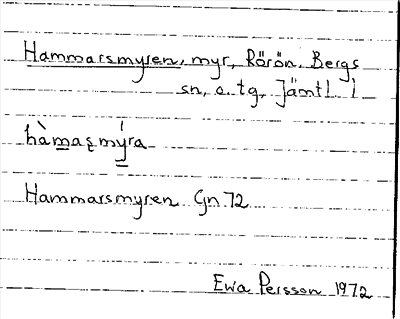 Hammarsmyren, myr, Rörön, Bergs
sn, o. tg, Jämtl. l
hàmaʂmýra
Hammarsmyren Gn 72
Ewa Persson 1972